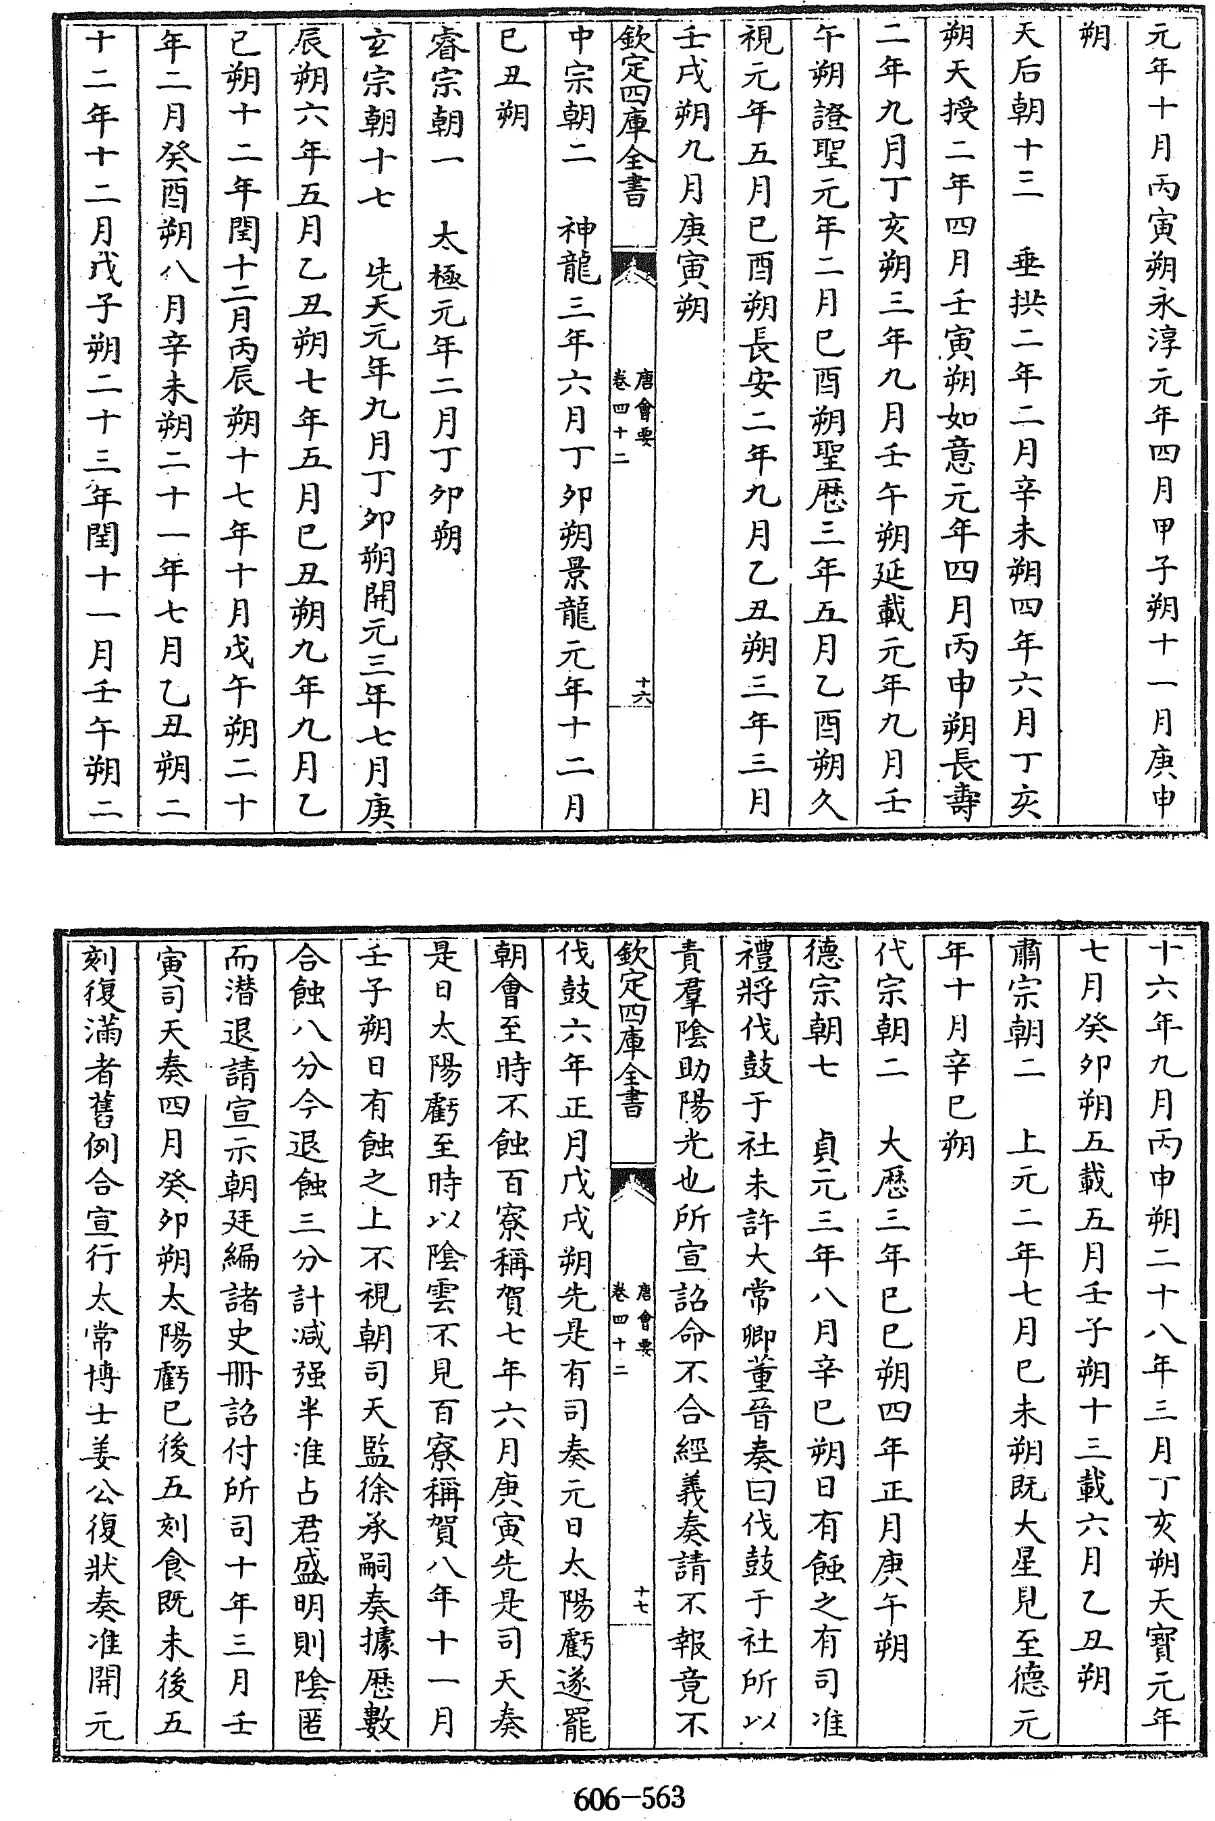 元年十月丙寅朔永淳元年四月甲子朔十一月庚申
朔
天后朝十三　垂拱二年二月辛未朔四年六月丁亥
朔天授二年四月壬寅朔如意元年四月丙申朔長壽
二年九月丁亥朔三年九月壬午朔延載元年九月壬
午朔證聖元年二月巳酉朔聖歷三年五月乙酉朔久
視元年五月巳酉朔長安二年九月乙丑朔三年三月
壬戌朔九月庚寅朔
欽定四庫全書
唐會要
卷四十二
十六
中宗朝二　神龍三年六月丁卯朔景龍元年十二月
巳丑朔
睿宗朝一　太極元年二月丁卯朔
玄宗朝十七　先天元年九月丁卯朔開元三年七月庚
辰朔六年五月乙丑朔七年五月巳丑朔九年九月乙
已朔十二年閏十二月丙辰朔十七年十月戊午朔二十
年二月癸酉朔八月辛未朔二十一年七月乙丑朔二
十二年十二月戊子朔二十三年閏十一月壬午朔二
十六年九月丙申朔二十八年三月丁亥朔天寶元年
七月癸卯朔五載五月壬子朔十三載六月乙丑朔
肅宗朝二　上元二年七月巳未朔既大星見至德元
年十月辛巳朔
代宗朝二　大歷三年巳巳朔四年正月庚午朔
德宗朝七　貞元三年八月辛巳朔日有蝕之有司准
禮將伐鼓于社未許大常卿董晉奏曰伐鼓于社所以
責羣陰助陽光也所宣詔命不合經義奏請不報竟不
欽定四庫全書
唐會要
卷四十二
十七
伐鼓六年正月戊戌朔先是有司奏元日太陽虧遂罷
朝會至時不蝕百寮稱賀七年六月庚寅先是司天奏
是日太陽虧至時以陰雲不見百寮稱賀八年十一月
壬子朔日有蝕之上不視朝司天監徐承嗣奏據歷數
合蝕八分今退蝕三分計減强半准占君盛明則陰匿
而潜退請宣示朝廷編諸史冊詔付所司十年三月壬
寅司天奏四月癸卯朔太陽虧巳後五刻食既未後五
刻復滿者舊例合宣行太常博士姜公復狀奏准開元
606-563